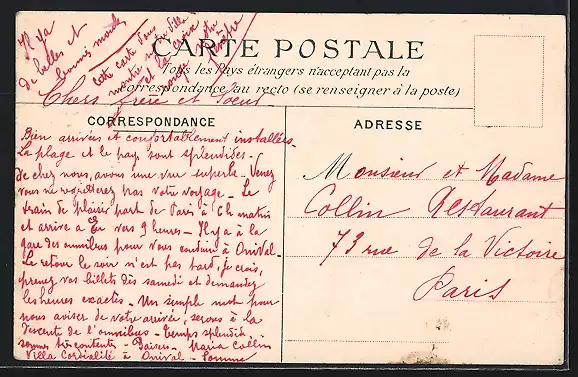 Il y a
de belles et
bonnes moules
cette carte vous
montre notre villa
et la croix
rouge notre
fenêtre
CARTE POSTALE
Tous les Pays étrangers n'acceptent pas la
correspondance au recto (se renseigner à la poste)
Chers frère et Soeur
CORRESPONDANCE
Bien arrivées et confortablement installées.
La plage et le pays sont splendides.
de chez nous, avons une vue superbe. Venez
vous ne regretterez pas votre voyage. Le
train de plaisir part de Paris à 6h matin
et arrive à Eu vers 9 heures. Il y a à la
gare des omnibus pour vous conduire à Onival.
Le retour le soir n'est pas tard, je crois,
prenez vos billets dès samedi et demandez
les heures exactes. Un simple mot pour
nous aviser de votre arrivée, serons à la
descente de l'omnibus. temps splendide.
sommes très contentes. Baisers. Maria Collin
Villa Cordialité à Onival. Somme
ADRESSE
Monsieur et Madame
Collin Restaurant
73 rue de la Victoire
Paris